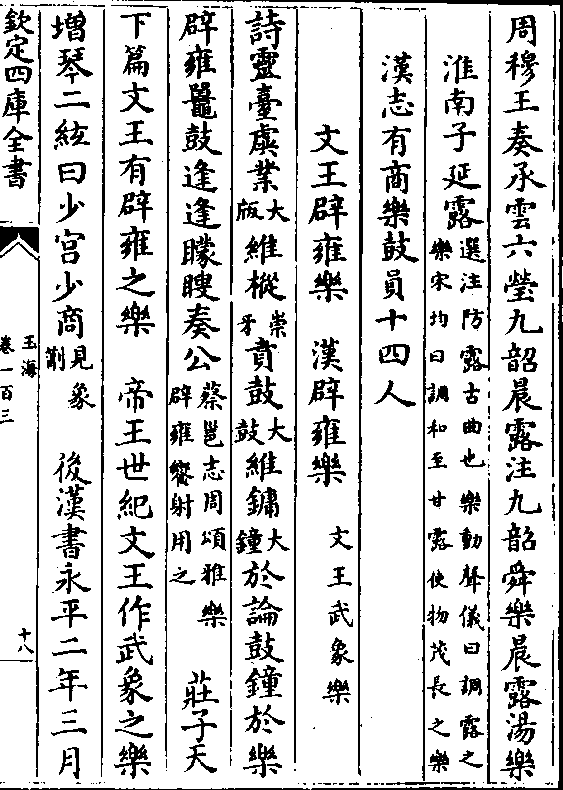 周穆王奏承雲六瑩九韶晨露注九韶舜樂晨露湯樂
淮南子延露選注防露古曲也樂動聲儀曰調露之樂宋均曰調和至甘露使物茂長之樂
漢志有商樂鼓員十四人
文王辟雍樂 漢辟雍樂 文王武象樂
詩靈臺虡業大版維樅崇牙賁鼓大鼓維鏞大鐘於論鼓鐘於樂
辟雍鼉鼓逢逢矇瞍奏公蔡邕志周頌雅樂辟雍饗射用之 莊子天
下篇文王有辟雍之樂 帝王世紀文王作武象之樂
增琴二絃曰少宮少商見象箾 後漢書永平二年三月
欽定四庫全書
玉海
卷一百三
十八